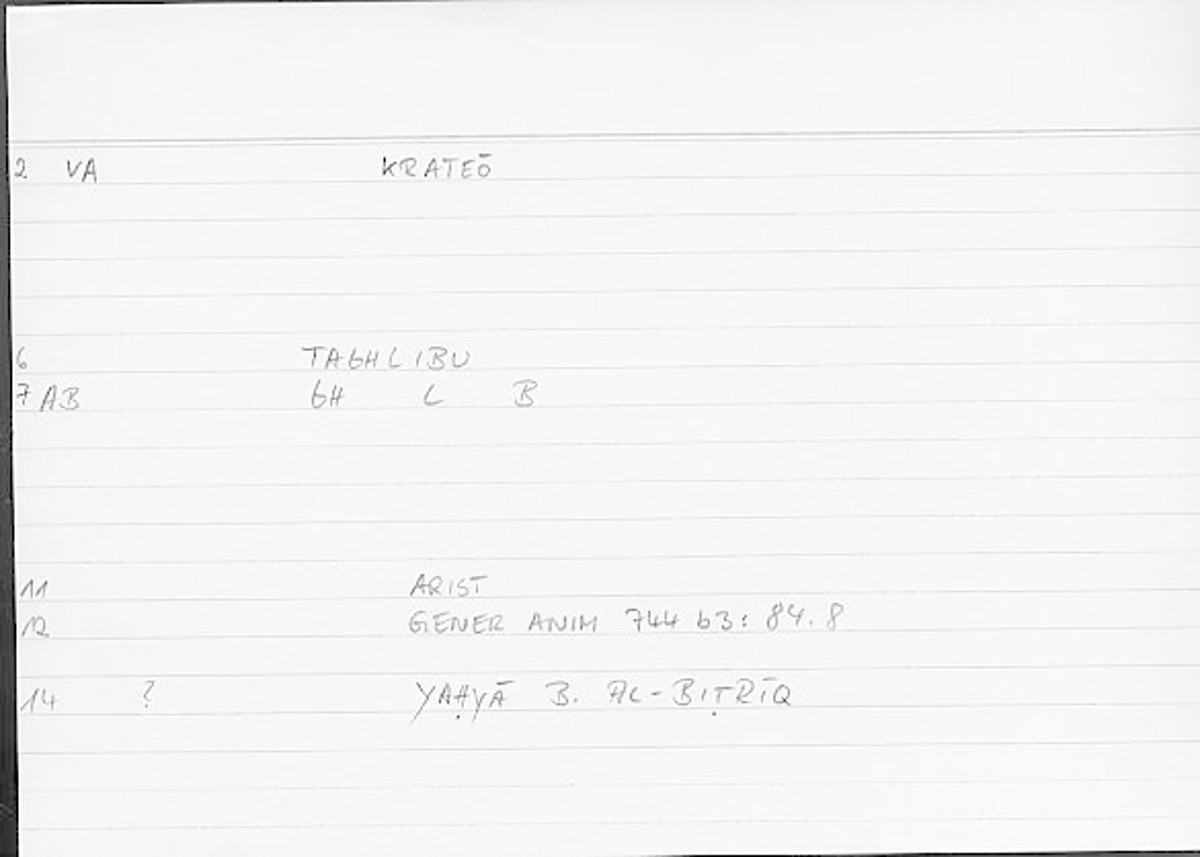 2 VA KRATEŌ
6 TAGHLIBU
7 AB GH L B
11 ARIST
12 GENER ANIM 744 b3: 84.8
14 ? YAḤYĀ B. AL-BIṬRĪQ